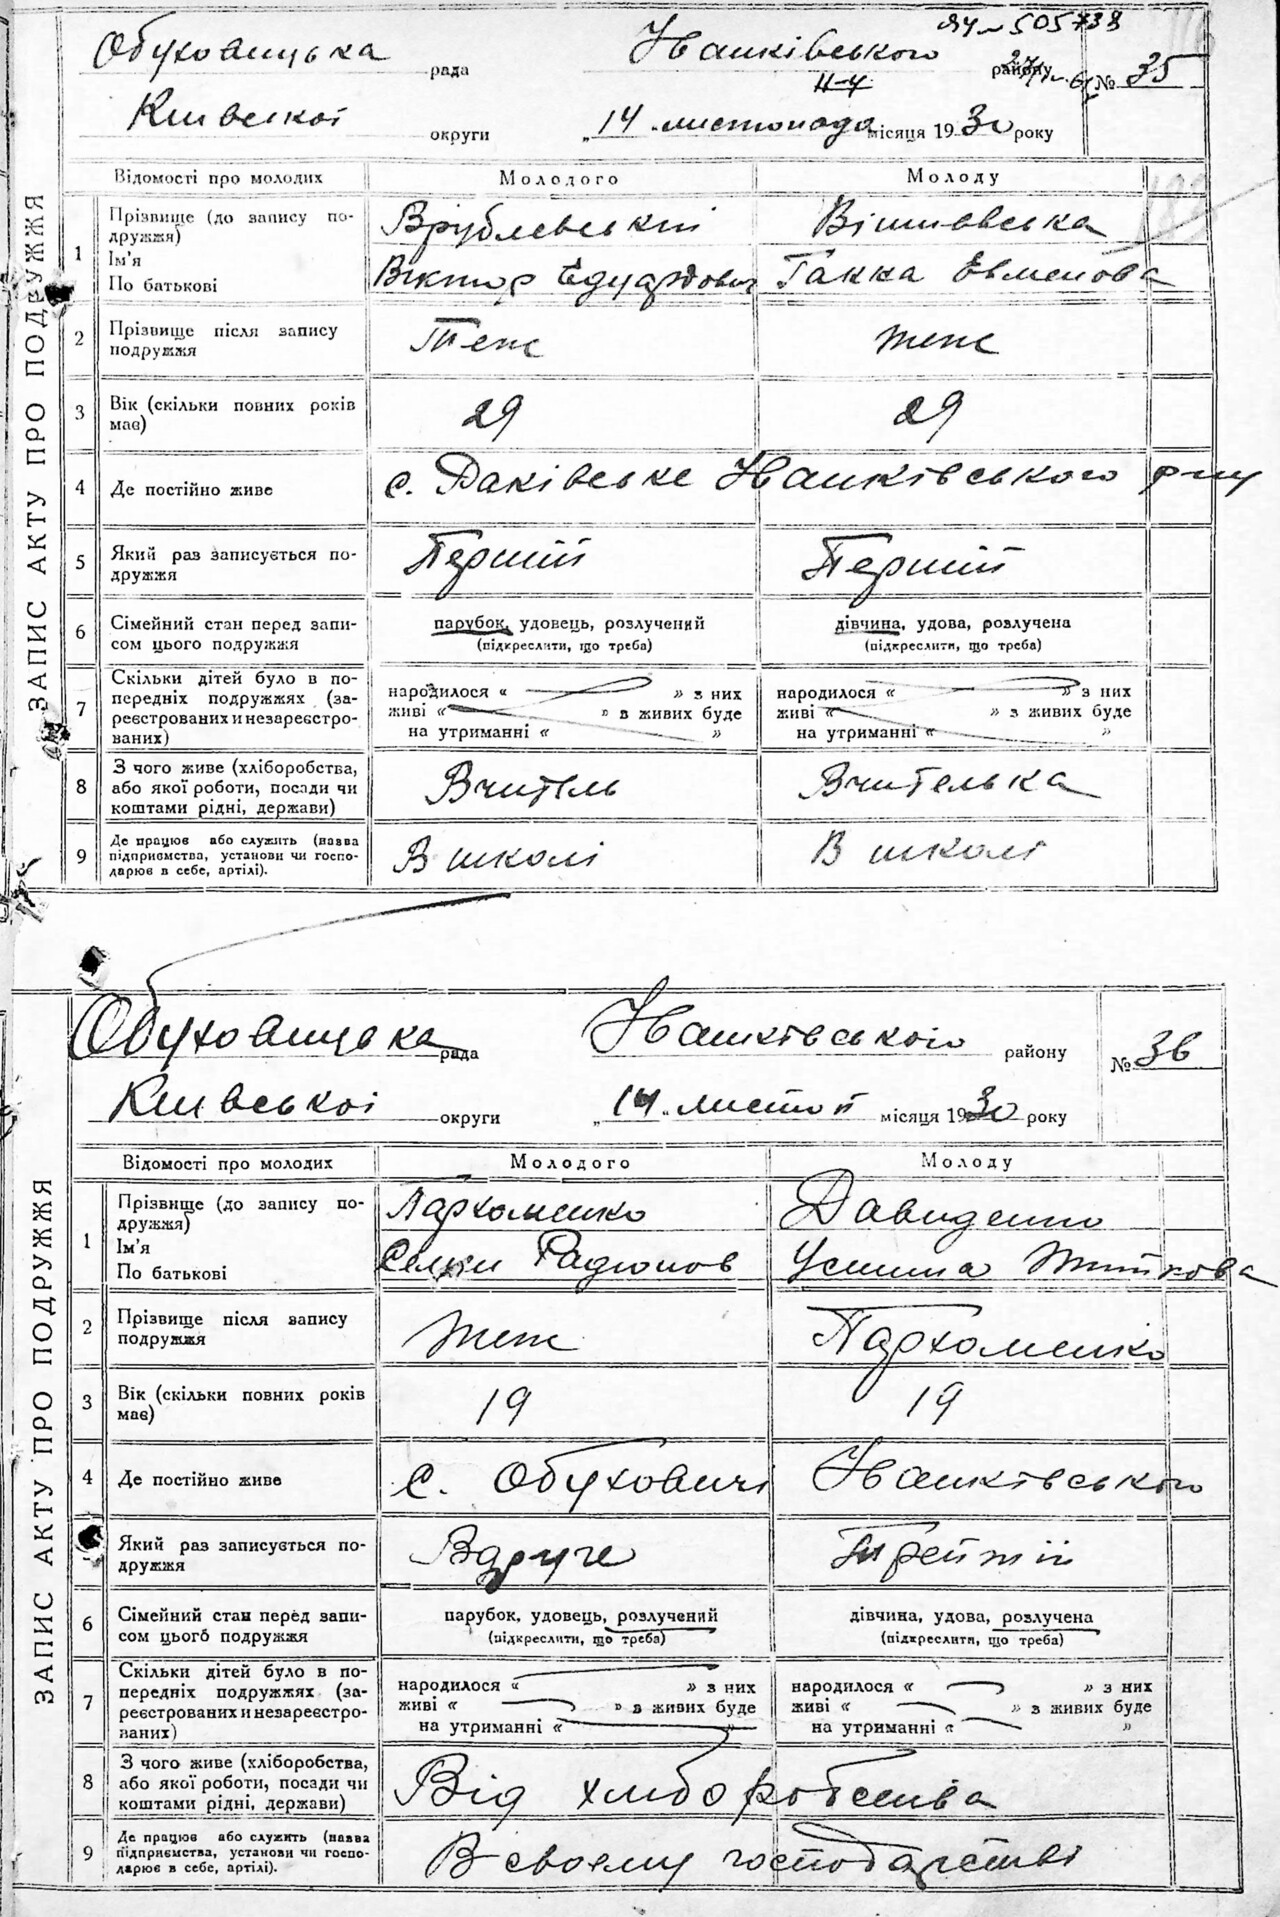 ЯЧ - 505738
Обуховицька рада Іванківського району № 35
Київської округи „14 " листопада місяця 1930 року
ЗАПИС АКТУ ПРО ПОДРУЖЖЯ
Відомості про молодих Молодого Молоду
1 Прізвище (до запису по- Врублевський Вішневська
дружжя)
Ім'я
По батькові Віктор Едуардович Ганна Евменова
2 Прізвище після запису Теж теж
подружжя
3 Вік (скільки повних років 29 29
має)
4 Де постійно живе с. Даківське Іванківського р-ну
5 Який раз записується по- Перший Перший
дружжя
6 Сімейний стан перед запи- парубок, удовець, розлучений дівчина, удова, розлучена
сом цього подружжя (підкреслити, що треба) (підкреслити, що треба)
7 Скільки дітей було в по-
передніх подружжях (за- народилося « » з них народилося « » з них
реєстрованих и незареєстро- живі « » в живих буде живі « » з живих буде
ваних) на утриманні « » на утриманні « »
8 З чого живе (хліборобства,
або якої роботи, посади чи Вчитель Вчителька
коштами рідні, держави)
9 Де працює або служить (назва
підприємства, установи чи госпо- В школі В школі
дарює в себе, артілі).
Обуховицька рада Іванківського району № 36
Київської округи „14 " листоп місяця 1930 року
ЗАПИС АКТУ ПРО ПОДРУЖЖЯ
Відомості про молодих Молодого Молоду
1 Прізвище (до запису по- Пархоменко Давиденко
дружжя)
Ім'я
По батькові Радіонов Устина Титкова
2 Прізвище після запису теж Пархоменко
подружжя
3 Вік (скільки повних років 19 19
має)
4 Де постійно живе с. Обуховичі Іванківського
Який раз записується по- Вдруге Третій
дружжя
6 Сімейний стан перед запи- парубок, удовець, розлучений дівчина, удова, розлучена
сом цього подружжя (підкреслити, що треба) (підкреслити, що треба)
7 Скільки дітей було в по-
передніх подружжях (за- народилося « » з них народилося « » з них
реєстрованих и незареєстро- живі « » в живих буде живі « » з живих буде
ваних) на утриманні « » на утриманні « »
8 З чого живе (хліборобства,
або якої роботи, посади чи Від хліборобства
коштами рідні, держави)
9 Де працює або служить (назва
підприємства, установи чи госпо- В своєму господарстві
дарює в себе, артілі).